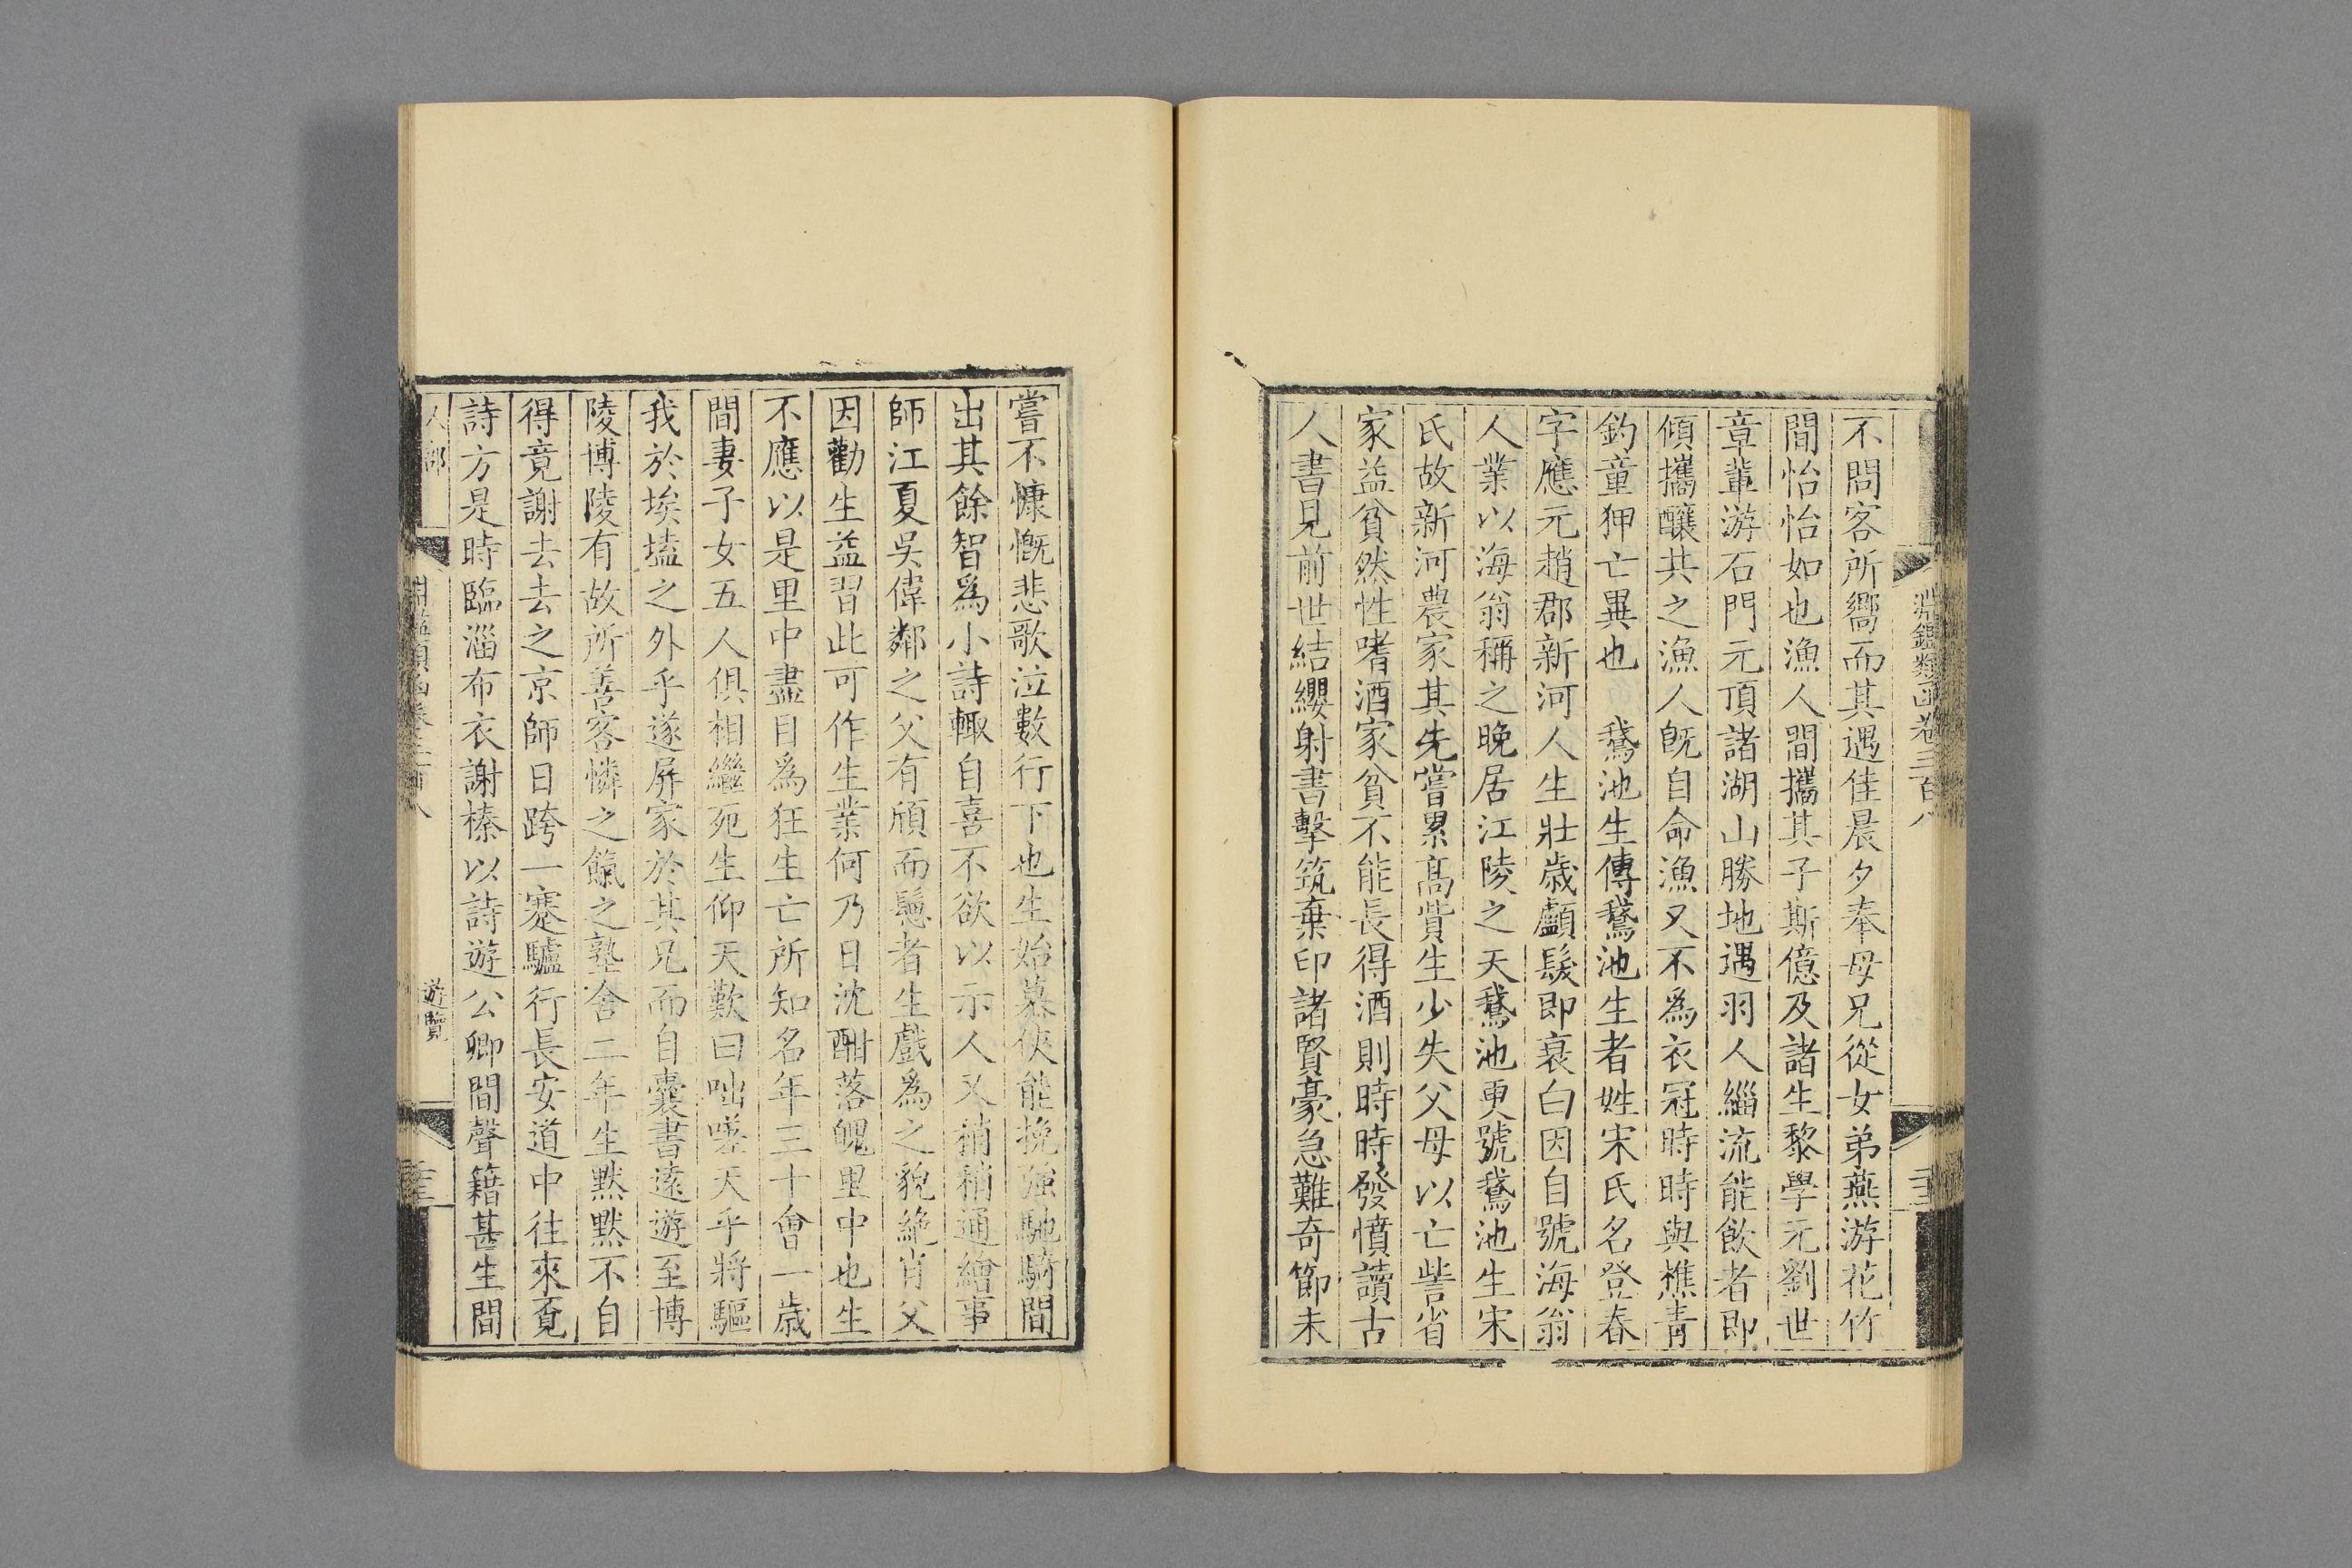 淵鑑類函卷三百八
不問客所嚮而其遇佳晨夕奉母兄從女弟燕游花竹
間怡怡如也漁人間攜其子斯億及諸生黎學元劉世
章輩游石門元頂諸湖山勝地遇羽人緇流能飲者即
傾攜釀共之漁人旣自命漁又不爲衣冠時時與樵青
釣童狎亡異也　鵞池生傳鵞池生者姓宋氏名登春
字應元趙郡新河人生壯歲顱髮即衰白因自號海翁
人業以海翁稱之晚居江陵之天鵞池更號鵞池生宋
氏故新河農家其先嘗累高貲生少失父母以亡訾省
家益貧然性嗜酒家貧不能長得酒則時時發憤讀古
人書見前世結纓射書擊筑棄印諸賢豪急難奇節未
嘗不慷慨悲歌泣數行下也生始慕俠能挽强馳騎間
出其餘智爲小詩輙自喜不欲以示人又稍稍通繪事
師江夏吳偉鄰之父有頎而鬈者生戲爲之貌絶肖父
因勸生益習此可作生業何乃日沈酣落魄里中也生
不應以是里中盡目爲狂生亡所知名年三十會一歲
間妻子女五人俱相繼死生仰天歎曰咄嗟天乎將驅
我於埃壒之外乎遂屏家於其兄而自囊書遠遊至博
陵博陵有故所善客憐之餼之塾舍二年生默默不自
得竟謝去去之京師日跨一蹇驢行長安道中往來覓
詩方是時臨淄布衣謝榛以詩遊公卿間聲籍甚生間
人部
淵鑑類函卷三百八
遊覽